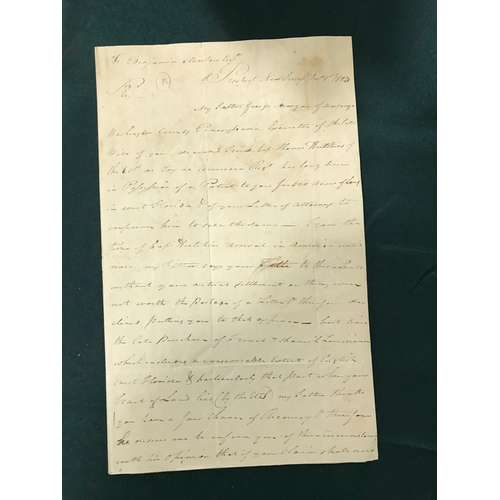 To Benjamin Marlow Esqr.
Sir
Prospect New Jersey 1803
My Father George Morgan of Morganza
Washington County Pennsylvania, Executor of the late
Will of your deceased Friend Capt Thomas Hutchins of
the 60th or Royal American Regt has long been
in Possession of a Patent to you for Acres of Land
in west Florida & of your Letter of Attorney to
empower him to the same — From the
time of Capt Hutchins arrival in America until
now, my Father says your Title to these Lands
without your actual settlement on them, were
not worth the Postage of a Letter & therefore de
clined putting you to that expence — but since
the late Purchase of Louisiana
which includes a considerable Extent of English
west Florida & particularly that part where your
Tract of Land lies (by the ) my Father thinks
you have a fair chance of Recovery & therefore
he desires me to inform you of this circumstance
with his Opinion that if your Claim